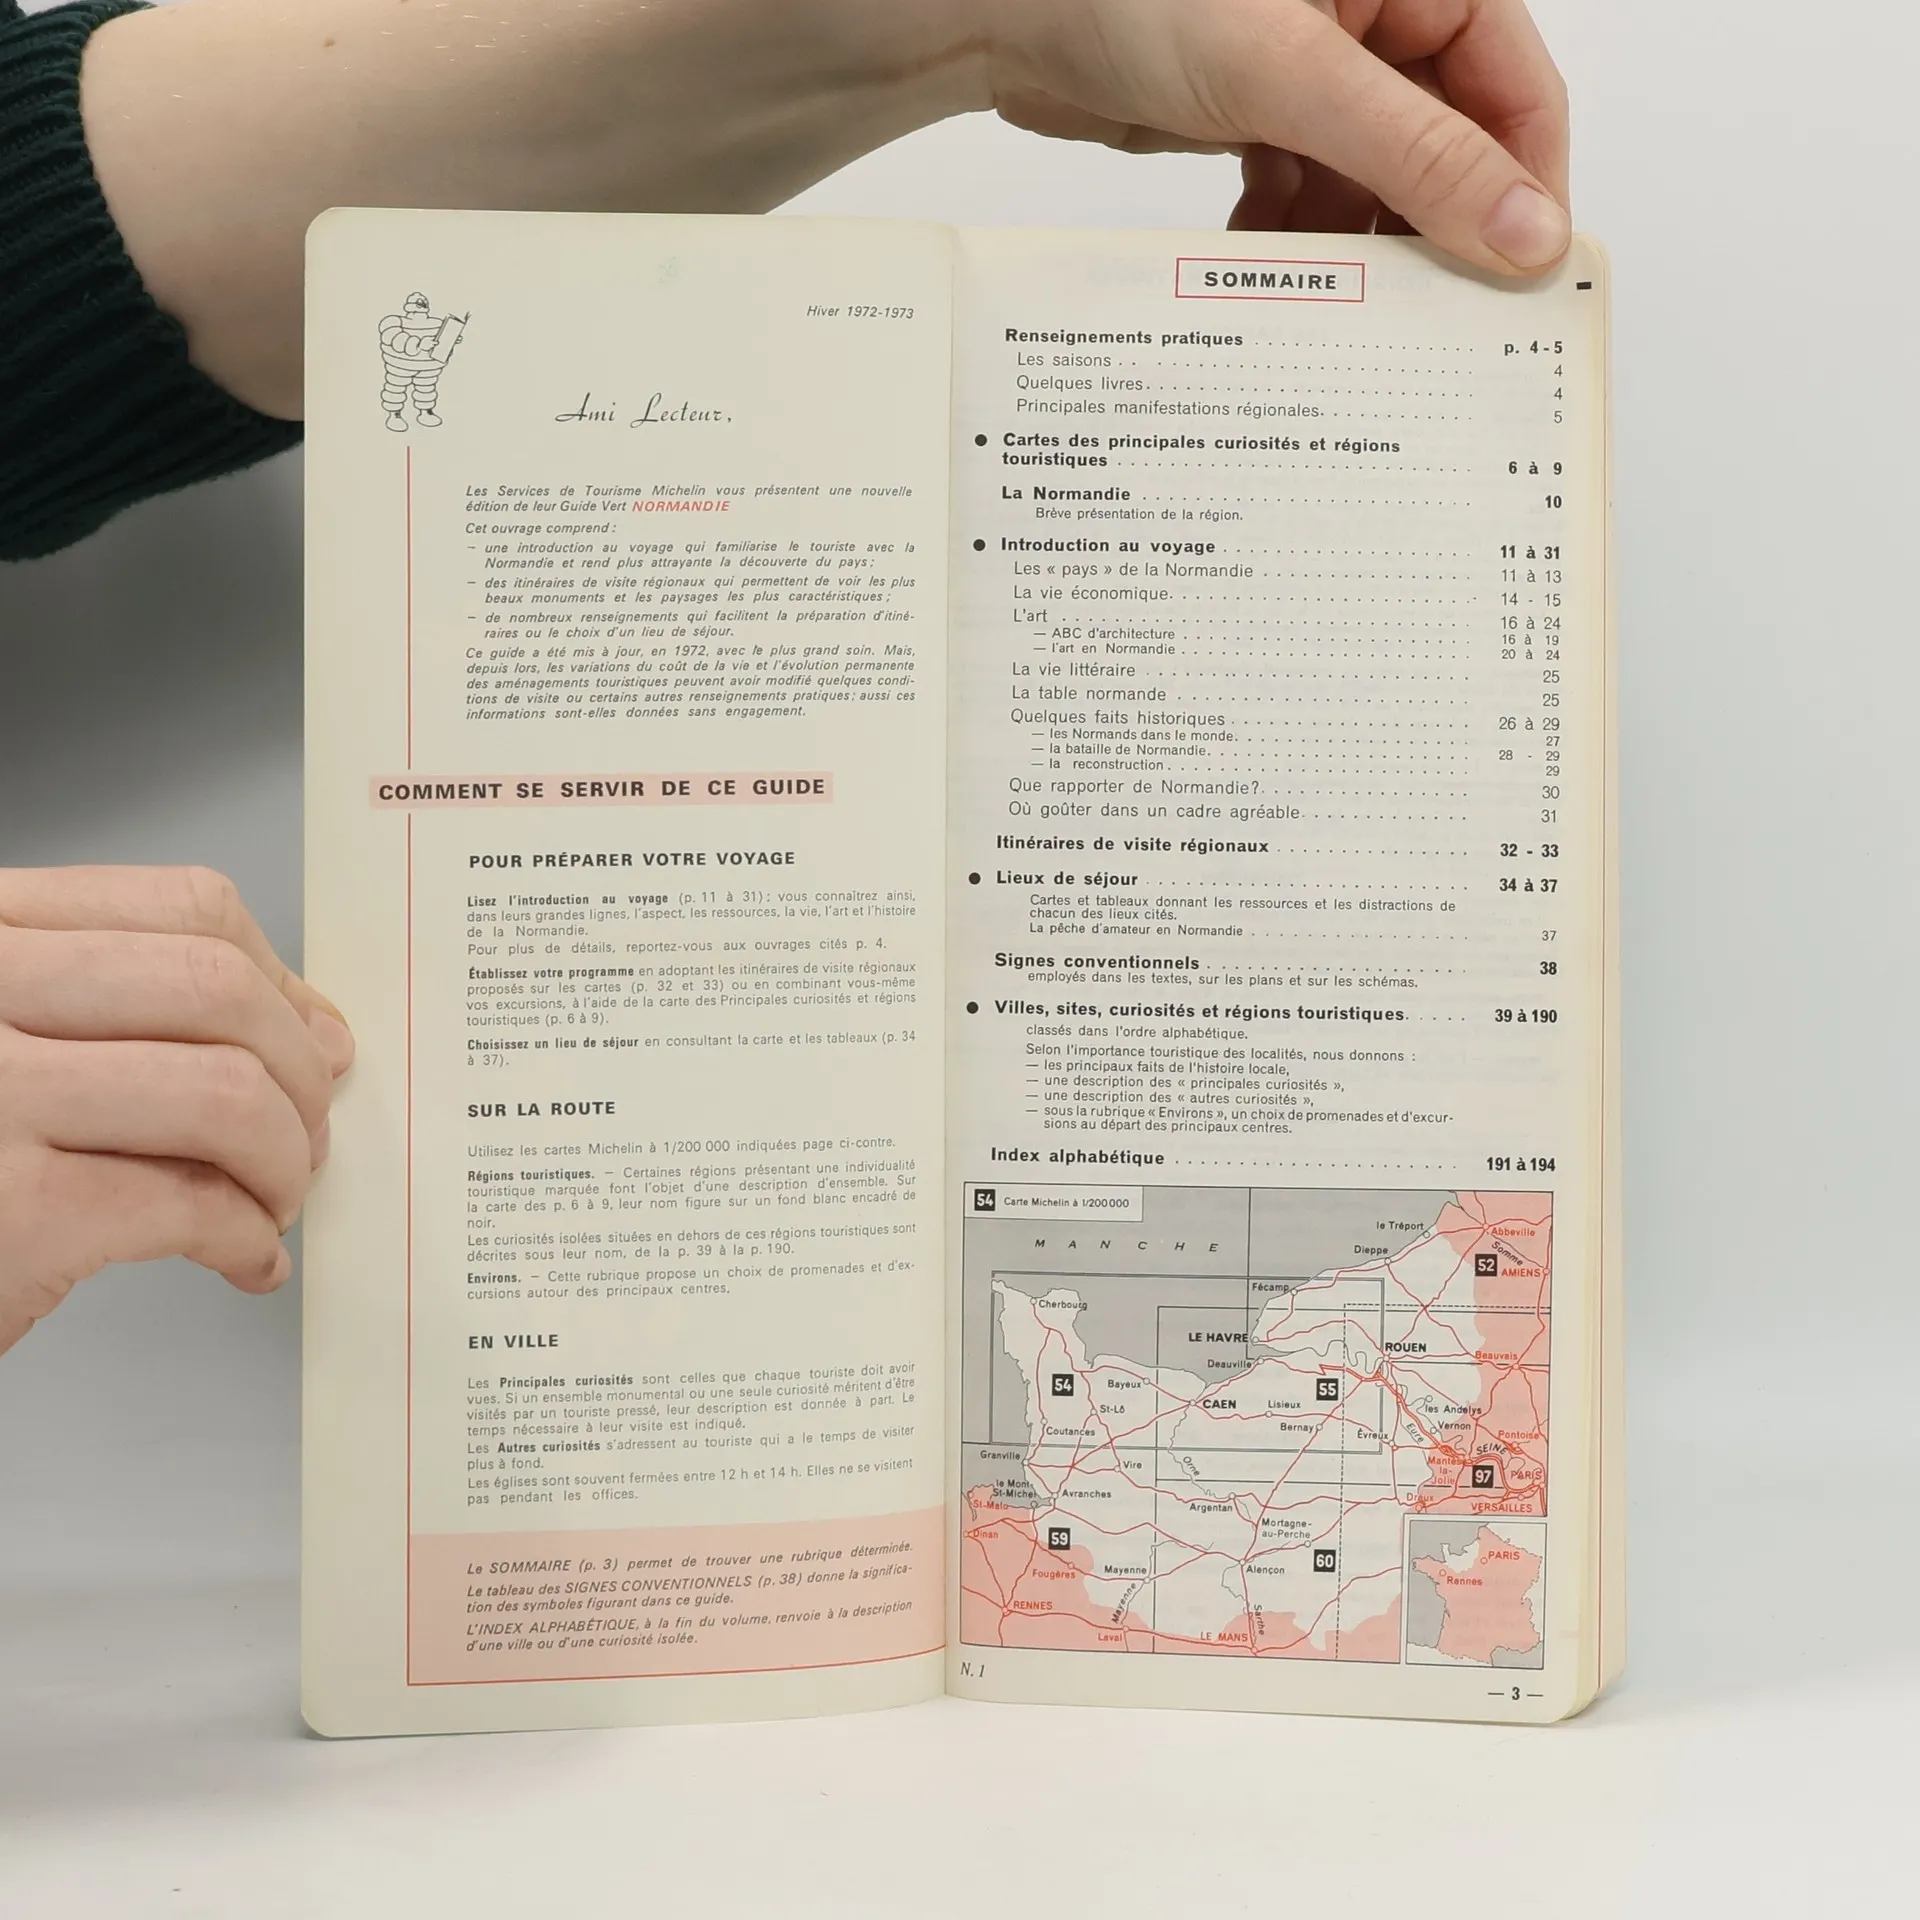 Hiver 1972-1973
Ami Lecteur,
Les Services de Tourisme Michelin vous présentent une nouvelle
édition de leur Guide Vert NORMANDIE
Cet ouvrage comprend :
— une introduction au voyage qui familiarise le touriste avec la
Normandie et rend plus attrayante la découverte du pays ;
— des itinéraires de visite régionaux qui permettent de voir les plus
beaux monuments et les paysages les plus caractéristiques ;
— de nombreux renseignements qui facilitent la préparation d'itiné-
raires ou le choix d'un lieu de séjour.
Ce guide a été mis à jour, en 1972, avec le plus grand soin. Mais,
depuis lors, les variations du coût de la vie et l'évolution permanente
des aménagements touristiques peuvent avoir modifié quelques condi-
tions de visite ou certains autres renseignements pratiques ; aussi ces
informations sont-elles données sans engagement.
COMMENT SE SERVIR DE CE GUIDE
POUR PRÉPARER VOTRE VOYAGE
Lisez l'introduction au voyage (p. 11 à 31) : vous connaîtrez ainsi,
dans leurs grandes lignes, l'aspect, les ressources, la vie, l'art et l'histoire
de la Normandie.
Pour plus de détails, reportez-vous aux ouvrages cités p. 4.
Établissez votre programme en adoptant les itinéraires de visite régionaux
proposés sur les cartes (p. 32 et 33) ou en combinant vous-même
vos excursions, à l'aide de la carte des Principales curiosités et régions
touristiques (p. 6 à 9).
Choisissez un lieu de séjour en consultant la carte et les tableaux (p. 34
à 37).
SUR LA ROUTE
Utilisez les cartes Michelin à 1/200 000 indiquées page ci-contre.
Régions touristiques. — Certaines régions présentant une individualité
touristique marquée font l'objet d'une description d'ensemble. Sur
la carte des p. 6 à 9, leur nom figure sur un fond blanc encadré de
noir.
Les curiosités isolées situées en dehors de ces régions touristiques sont
décrites sous leur nom, de la p. 39 à la p. 190.
Environs. — Cette rubrique propose un choix de promenades et d'ex-
cursions autour des principaux centres.
EN VILLE
Les Principales curiosités sont celles que chaque touriste doit avoir
vues. Si un ensemble monumental ou une seule curiosité méritent d'être
visités par un touriste pressé, leur description est donnée à part. Le
temps nécessaire à leur visite est indiqué.
Les Autres curiosités s'adressent au touriste qui a le temps de visiter
plus à fond.
Les églises sont souvent fermées entre 12 h et 14 h. Elles ne se visitent
pas pendant les offices.
Le SOMMAIRE (p. 3) permet de trouver une rubrique déterminée.
Le tableau des SIGNES CONVENTIONNELS (p. 38) donne la significa-
tion des symboles figurant dans ce guide.
L'INDEX ALPHABÉTIQUE, à la fin du volume, renvoie à la description
d'une ville ou d'une curiosité isolée.
SOMMAIRE
Renseignements pratiques . . . . . p. 4 - 5
Les saisons . . . . . 4
Quelques livres. . . . . 4
Principales manifestations régionales. . . . . 5
● Cartes des principales curiosités et régions
touristiques . . . . . 6 à 9
La Normandie . . . . . 10
Brève présentation de la région.
● Introduction au voyage . . . . . 11 à 31
Les « pays » de la Normandie . . . . . 11 à 13
La vie économique. . . . . 14 - 15
L'art . . . . . 16 à 24
— ABC d'architecture . . . . . 16 à 19
— l'art en Normandie . . . . . 20 à 24
La vie littéraire . . . . . 25
La table normande . . . . . 25
Quelques faits historiques . . . . . 26 à 29
— les Normands dans le monde. . . . . 27
— la bataille de Normandie. . . . . 28 - 29
— la reconstruction . . . . . 29
Que rapporter de Normandie?. . . . . 30
Où goûter dans un cadre agréable. . . . . 31
Itinéraires de visite régionaux . . . . . 32 - 33
● Lieux de séjour . . . . . 34 à 37
Cartes et tableaux donnant les ressources et les distractions de
chacun des lieux cités.
La pêche d'amateur en Normandie . . . . . 37
Signes conventionnels . . . . . 38
employés dans les textes, sur les plans et sur les schémas.
● Villes, sites, curiosités et régions touristiques. . . . . 39 à 190
classés dans l'ordre alphabétique.
Selon l'importance touristique des localités, nous donnons :
— les principaux faits de l'histoire locale,
— une description des « principales curiosités »,
— une description des « autres curiosités »,
— sous la rubrique « Environs », un choix de promenades et d'excur-
sions au départ des principaux centres.
Index alphabétique . . . . . 191 à 194
54 Carte Michelin à 1/200 000
MANCHE
le Tréport
Abbeville
Dieppe
Somme
52
AMIENS
Fécamp
Cherbourg
LE HAVRE
ROUEN
Deauville
Beauvais
54
Bayeux
55
CAEN
Lisieux
les Andelys
St-Lô
Bernay
Vernon
Coutances
Évreux
Eure
Pontoise
Granville
SEINE
Vire
Orne
Mantes-
la-
Jolie
97
PARIS
le Mont-
St-Michel
St-Malo
Avranches
Argentan
Dreux
VERSAILLES
Dinan
Mortagne-
au-Perche
59
60
PARIS
Fougères
Mayenne
Alençon
Rennes
RENNES
Mayenne
Sarthe
Laval
LE MANS
N. 1
— 3 —